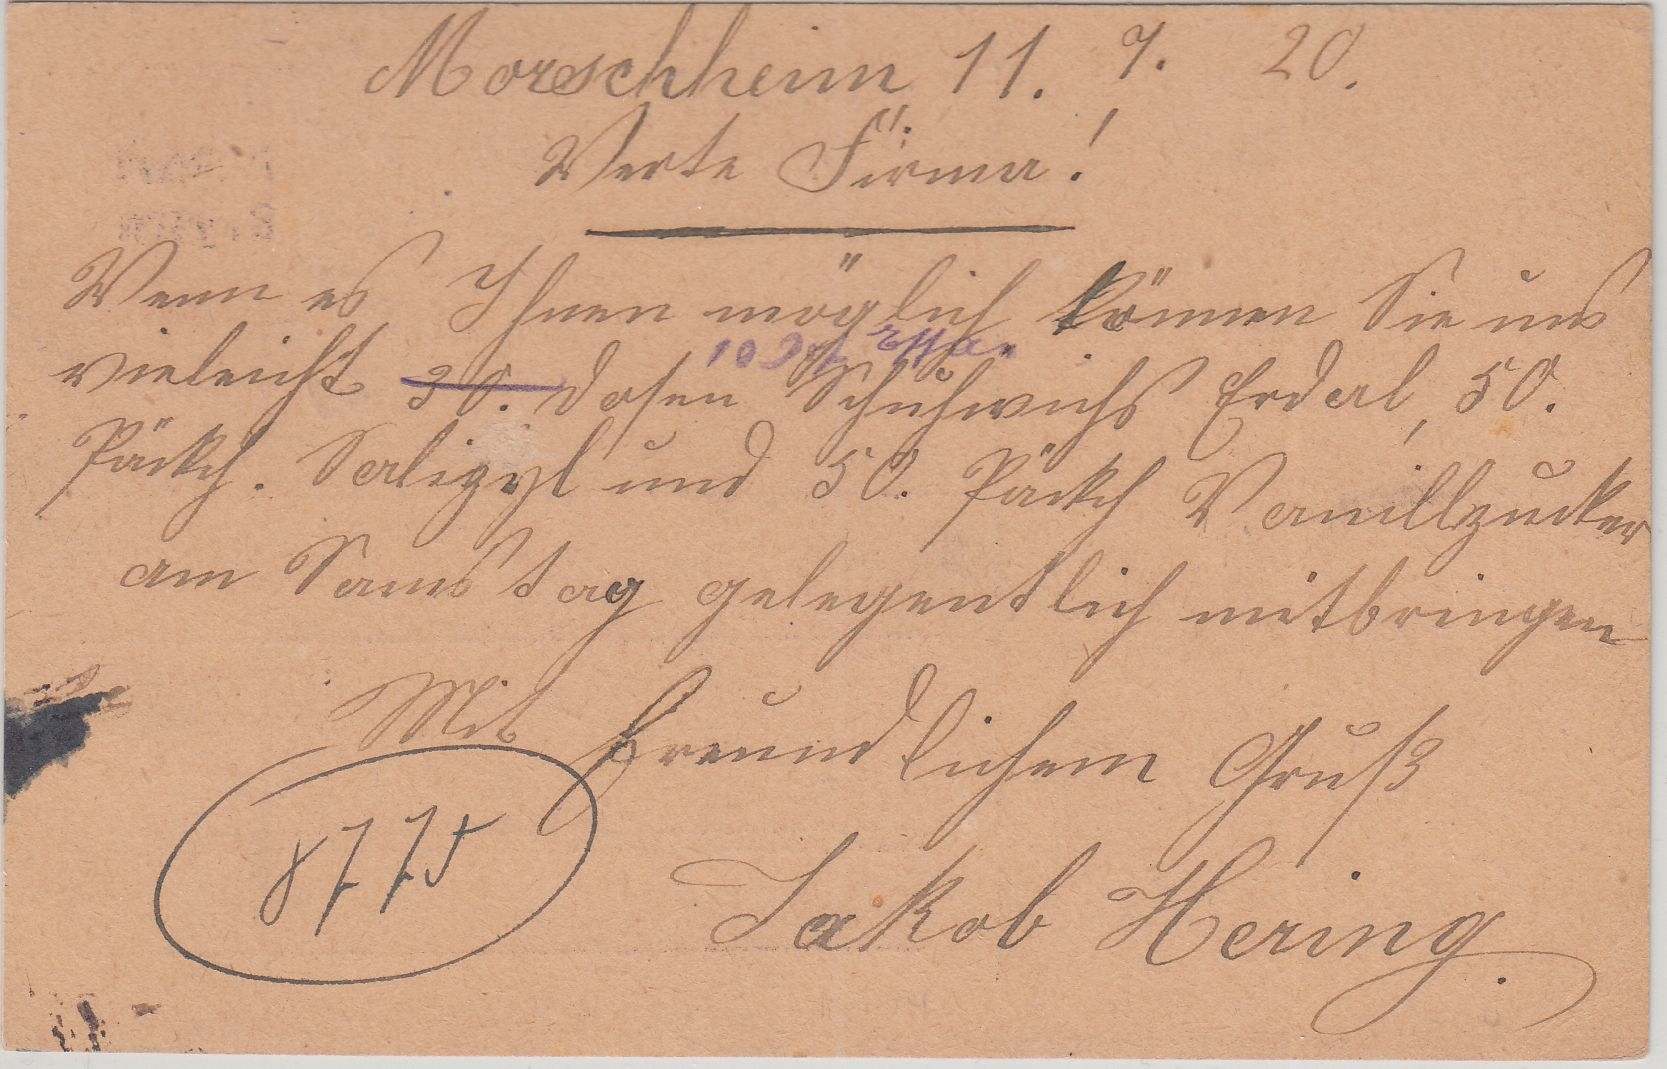 Morschheim 11. 7. 20.
Werte Firma!
Wenn es Ihnen möglich können Sie uns
vieleicht 30. Dosen Schuhwichs Erdal, 50.
Päckch. Salizyl und 50. Päckch Vanillzucker
am Samstag gelegentlich mitbringen
Mit freundlichem Gruß
Jakob Hering.